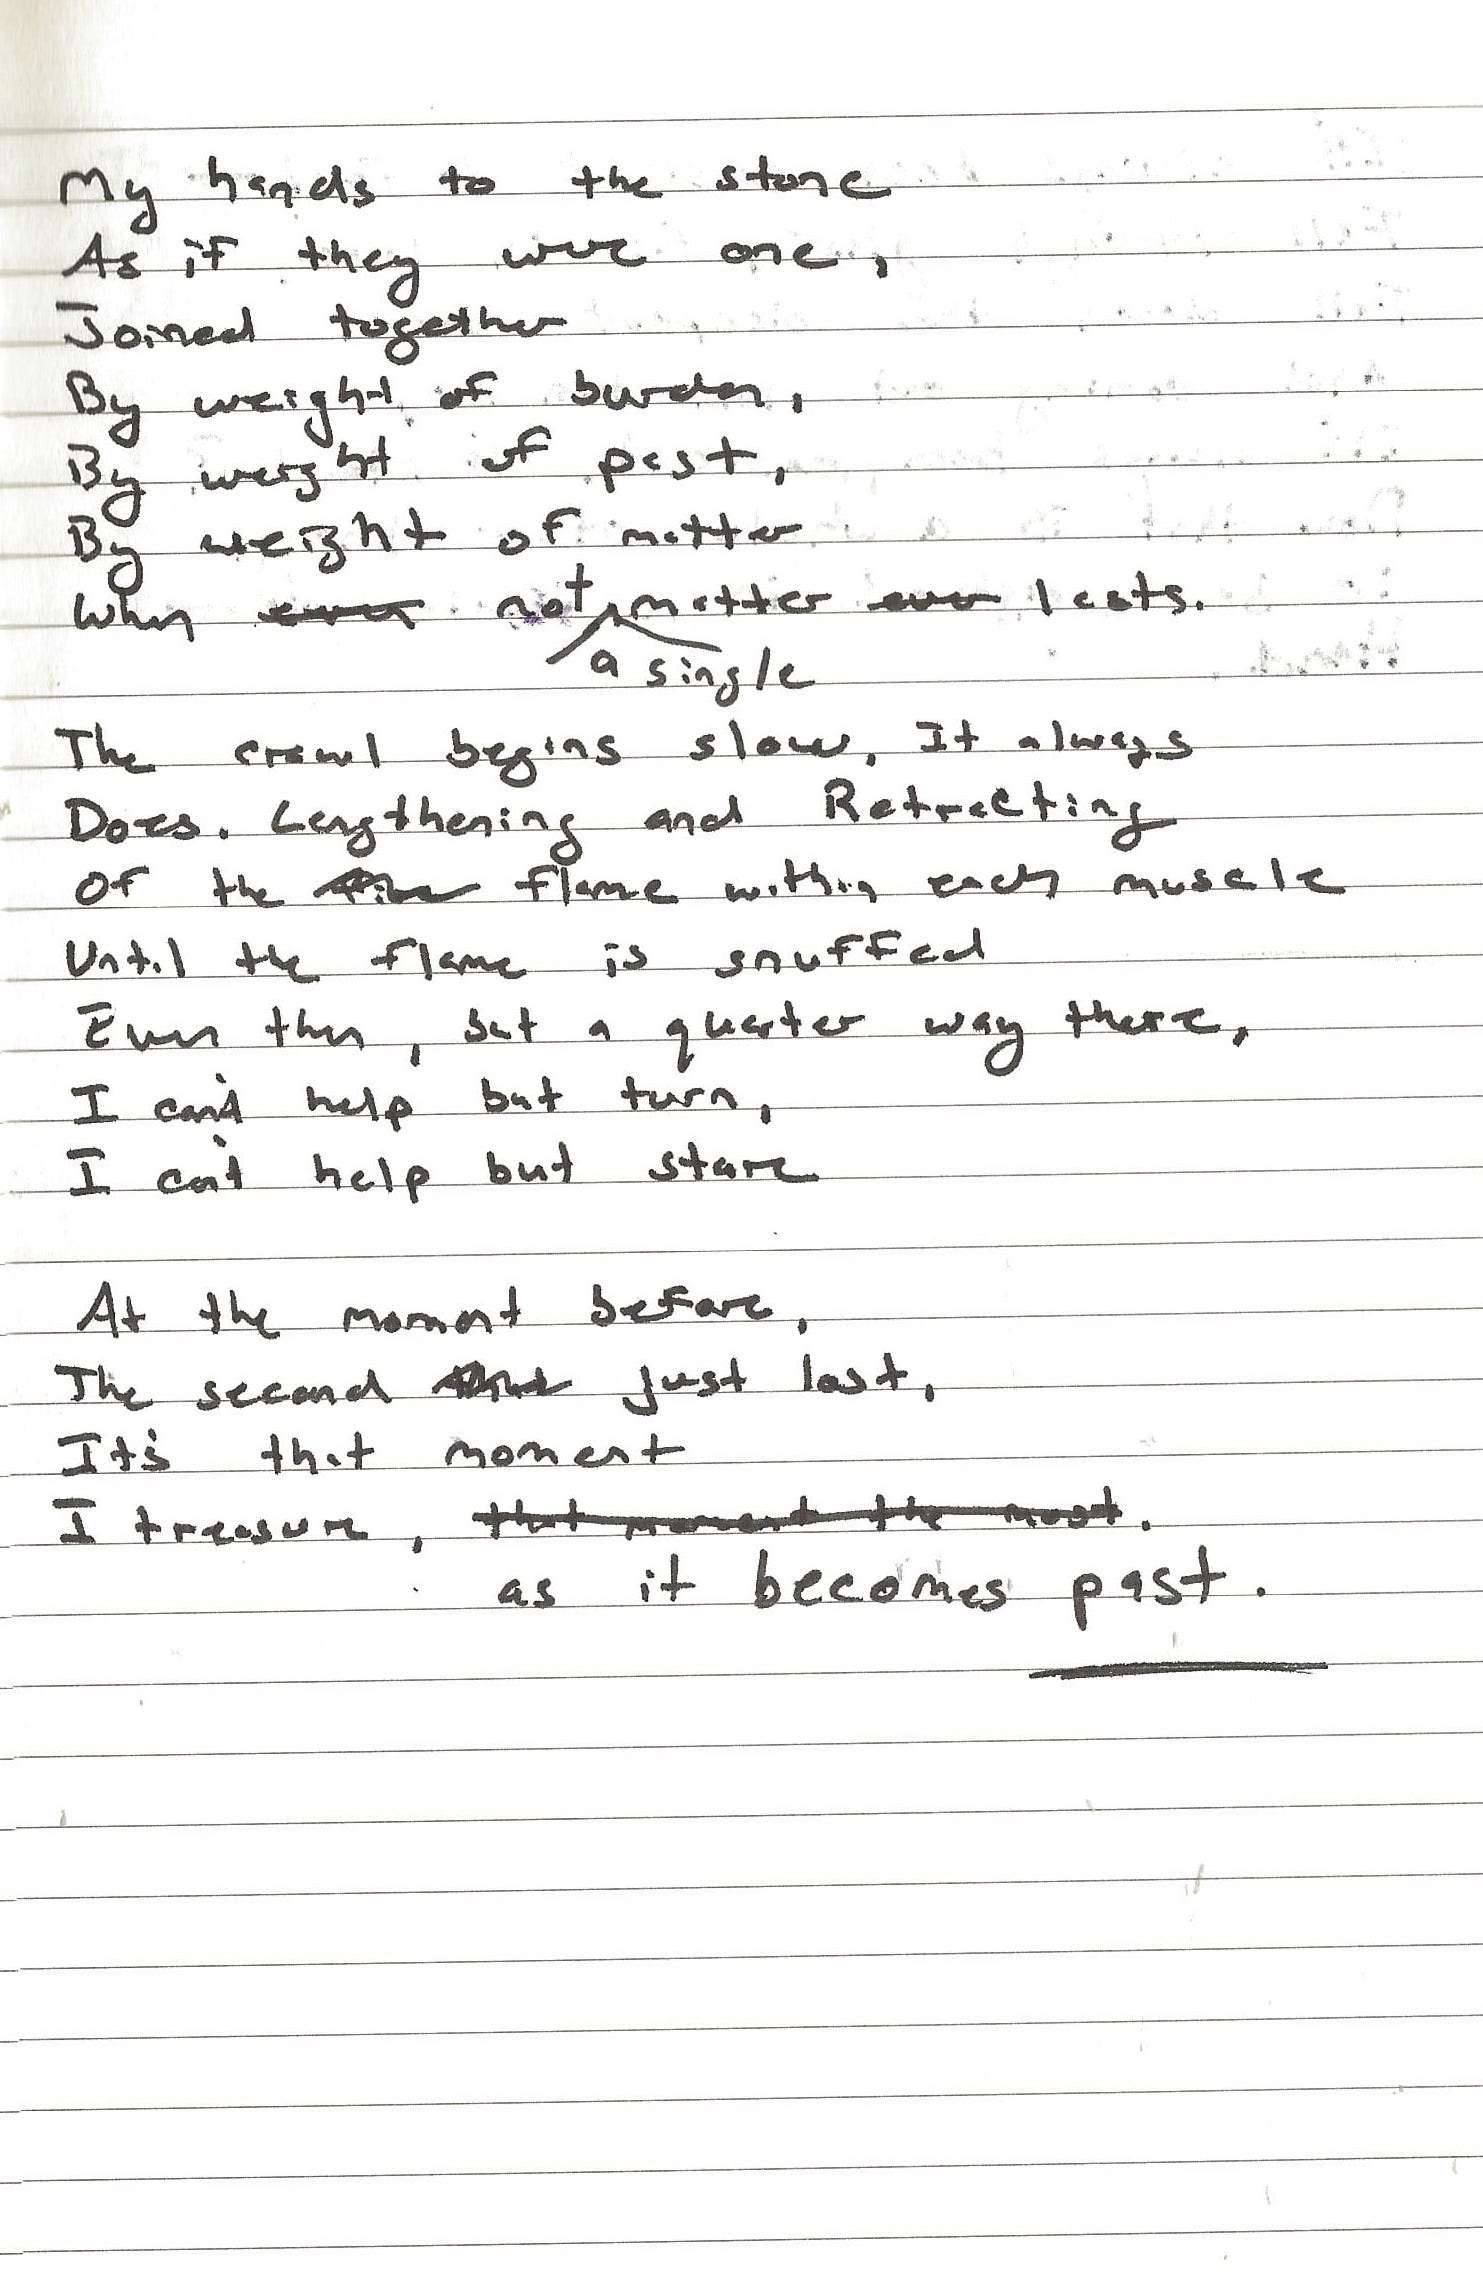 My hands to the stone
As if they were one,
Joined together
By weight of burden,
By weight of past,
By weight of matter
When ever not matter ever lasts.
a single
The crawl begins slow. It always
Does. Lengthening and Retracting
Of the flame within each muscle
Until the flame is snuffed
Even then, but a quarter way there,
I can't help but turn,
I can't help but stare
At the moment before,
The second just last,
It's that moment
I treasure, that moment the most.
as it becomes past.